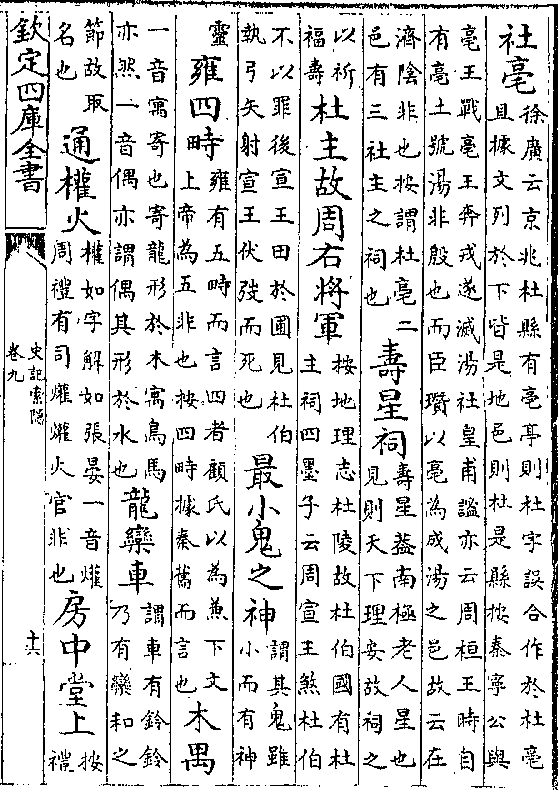 社亳徐廣云京兆杜縣有亳亭則社字誤合作於杜亳
且據文列於下皆是地邑則杜是縣按秦寧公與
亳王戰亳王奔戎遂滅湯社皇甫謐亦云周桓王時自
有亳土號湯非殷也而臣瓚以亳為成湯之邑故云在
濟陰非也按謂杜亳二
邑有三社主之祠也
壽星祠壽星葢南極老人星也
見則天下理安故祠之
以祈
福壽
杜主故周右將軍按地理志杜陵故杜伯國有杜
主祠四墨子云周宣王煞杜伯
不以罪後宣王田於圃見杜伯
執弓矢射宣王伏弢而死也
最小鬼之神謂其鬼雖
小而有神
靈
雍四時雍有五時而言四者顧氏以為兼下文
上帝為五非也按四時據秦舊而言也
木禺
一音寓寄也寄龍形於木寓鳥馬
亦然一音偶亦謂偶其形於水也
龍欒車謂車有鈴鈴
乃有欒和之
節故取
名也
通權火權如字解如張晏一音爟
周禮有司爟爟火官非也
房中堂上按
禮
欽定四庫全書
史記索隱
卷九
十六